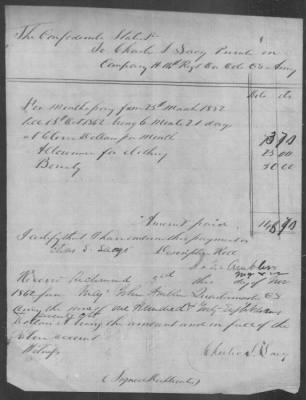 The Confederate States
To Charles S Lacy Private in
Company H
Army
Dols cts
For Months pay from 25th March 1862
till 15th Oct 1862 being 6 Months 21 days
at Eleven Dollars per Month 73 70
Allowance for clothing 25 00
Bounty 50 00
Amount paid 148 70
I certify that I have endorsed this payment on
Chas S Lacy Descriptive Roll
John Ambler
Received Richmond this day of Nov
1862 from Maj John Ambler Quartermaster CS
Army the sum of one Hundred
Dollars it being the amount and in full of the
above account
Witness
Charles S. Lacy
(Signed Duplicate)